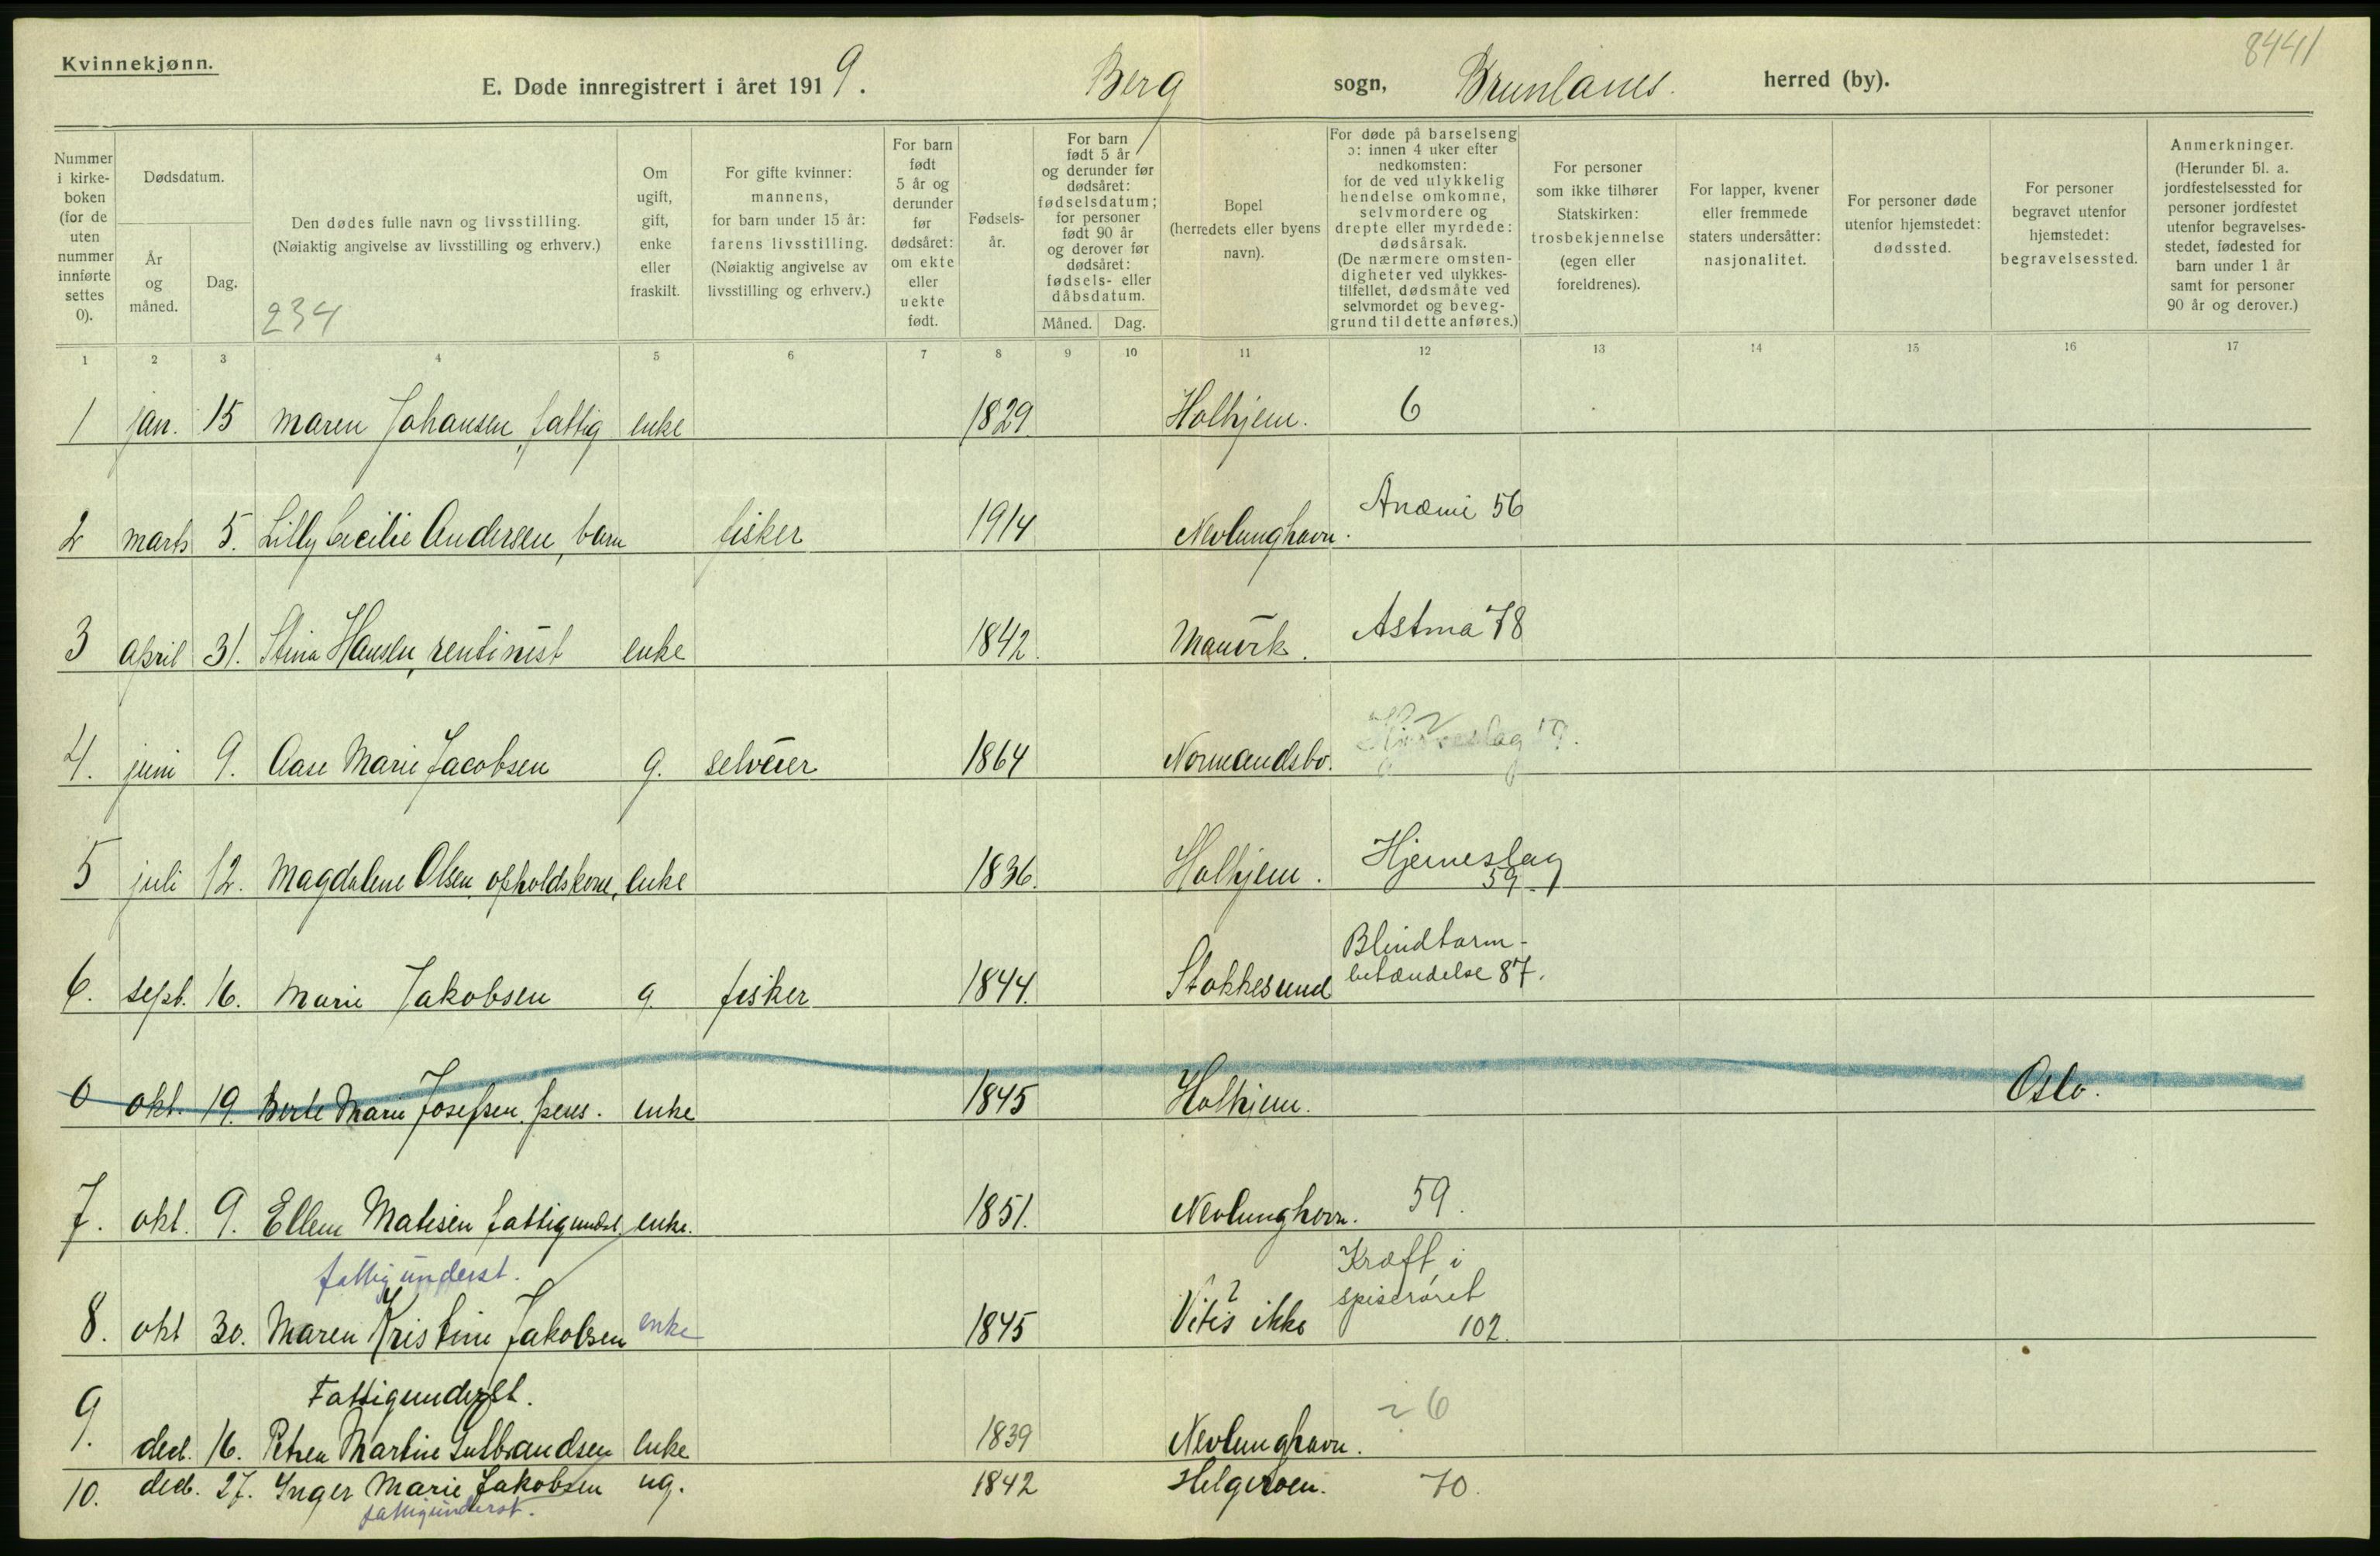 8441
Kvinnekjønn.
E. Døde innregistrert i året 1919. Berg sogn, Brunlanes. herred (by).
Nummer i kirkeboken (for de uten nummer innførte settes 0).
Dødsdatum.
År og måned.
Dag.
Den dødes fulle navn og livsstilling.
(Nøiaktig angivelse av livsstilling og erhverv.)
234
Om ugift, gift, enke eller fraskilt.
For gifte kvinner: mannens, for barn under 15 år: farens livsstilling. (Nøiaktig angivelse av livsstilling og erhverv.)
For barn født 5 år og derunder før dødsåret: om ekte eller uekte født.
Fødselsår.
For barn født 5 år og derunder før dødsåret: fødselsdatum; for personer født 90 år og derover før dødsåret: fødsels- eller dåbsdatum.
Måned. Dag.
Bopel (herredets eller byens navn).
For døde på barselseng ɔ: innen 4 uker efter nedkomsten: for de ved ulykkelig hendelse omkomne, selvmordere og drepte eller myrdede: dødsårsak. (De nærmere omstendigheter ved ulykkestilfellet, dødsmåte ved selvmordet og beveggrund til dette anføres.)
For personer som ikke tilhører Statskirken: trosbekjennelse (egen eller foreldrenes).
For lapper, kvener eller fremmede staters undersåtter: nasjonalitet.
For personer døde utenfor hjemstedet: dødssted.
For personer begravet utenfor hjemstedet: begravelsessted.
Anmerkninger. (Herunder bl. a. jordfestelsessted for personer jordfestet utenfor begravelsesstedet, fødested for barn under 1 år samt for personer 90 år og derover.)
1 2 3 4 5 6 7 8 9 10 11 12 13 14 15 16 17
1 jan. 15 Maren Johansen, fattig enke 1829 Holhjem. 6
2 marts 5. Lilly Cecilie Andersen, barn fisker 1914 Nevlunghavn. Anæmi 56
3 april 31. Stina Hansen, rentinist enke 1842. Manvik. Astma 78
4. juni 9. Aase Marie Jacobsen g. selveier 1864 Normandsbo.
5 juli 12. Magdalene Olsen, opholdskone, enke 1836. Holhjem. Hjerneslag 59
6. sept. 16. Marie Jakobsen g. fisker 1844. Stokkesund Blindtarm-
betændelse 87.
0 okt. 19. Berte Marie Josefsen pens. enke 1845 Holhjem. Oslo.
7. okt. 9. Ellen Matisen fattigundst. enke. 1851. Nevlunghavn. 59.
fattigunderst. Kræft i
spiserøret
8. okt 30. Maren Kristine Jakobsen enke 1845 Vites ikke 102.
Fattigunderst.
9. ded. 16. Petrea Martine Gulbrandsen enke 1839 Nevlunghavn. 6
10. ded. 27. Inger Marie Jakobsen ug. 1842 Helgeroen. 70.
fattigunderst.